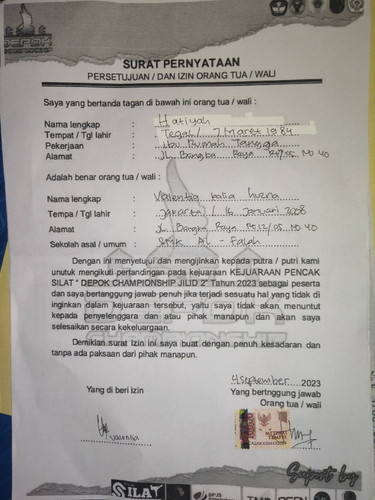 DEPOK
CHAMPIONSHIP
SURAT PERNYATAAN
PERSETUJUAN / DAN IZIN ORANG TUA / WALI
Saya yang bertanda tagan di bawah ini orang tua / wali :
Nama lengkap : Hatiyah
Tempat / Tgl lahir : Tegal / 7 Maret 1984
Pekerjaan : Ibu Rumah Tangga
Alamat : JL. Bangka Raya NO 40
Adalah benar orang tua / wali :
Nama lengkap : Valentia
Tempa / Tgl lahir : Jakarta / 16 Januari 2008
Alamat : JL. Bangka Raya NO 40
Sekolah asal / umum : SMK AL - Falah
Dengan ini menyetujui dan mengijinkan kepada putra / putri kami
unutuk mengikuti pertandingan pada kejuaraan KEJUARAAN PENCAK
SILAT " DEPOK CHAMPIONSHIP JILID 2" Tahun 2023 sebagai peserta
dan saya bertanggung jawab penuh jika terjadi sesuatu hal yang tidak di
inginkan dalam kejuaraan tersebut, yaitu saya tidak akan, menuntut
kepada penyelenggara dan atau pihak manapun dan akan saya
selesaikan secara kekeluargaan.
Demikian surat Izin ini saya buat dengan penuh kesadaran dan
tanpa ada paksaan dari pihak manapun.
4 September 2023
Yang di beri izin Yang bertnggung jawab
Orang tua / wali
Suport by
SILAT BPJS